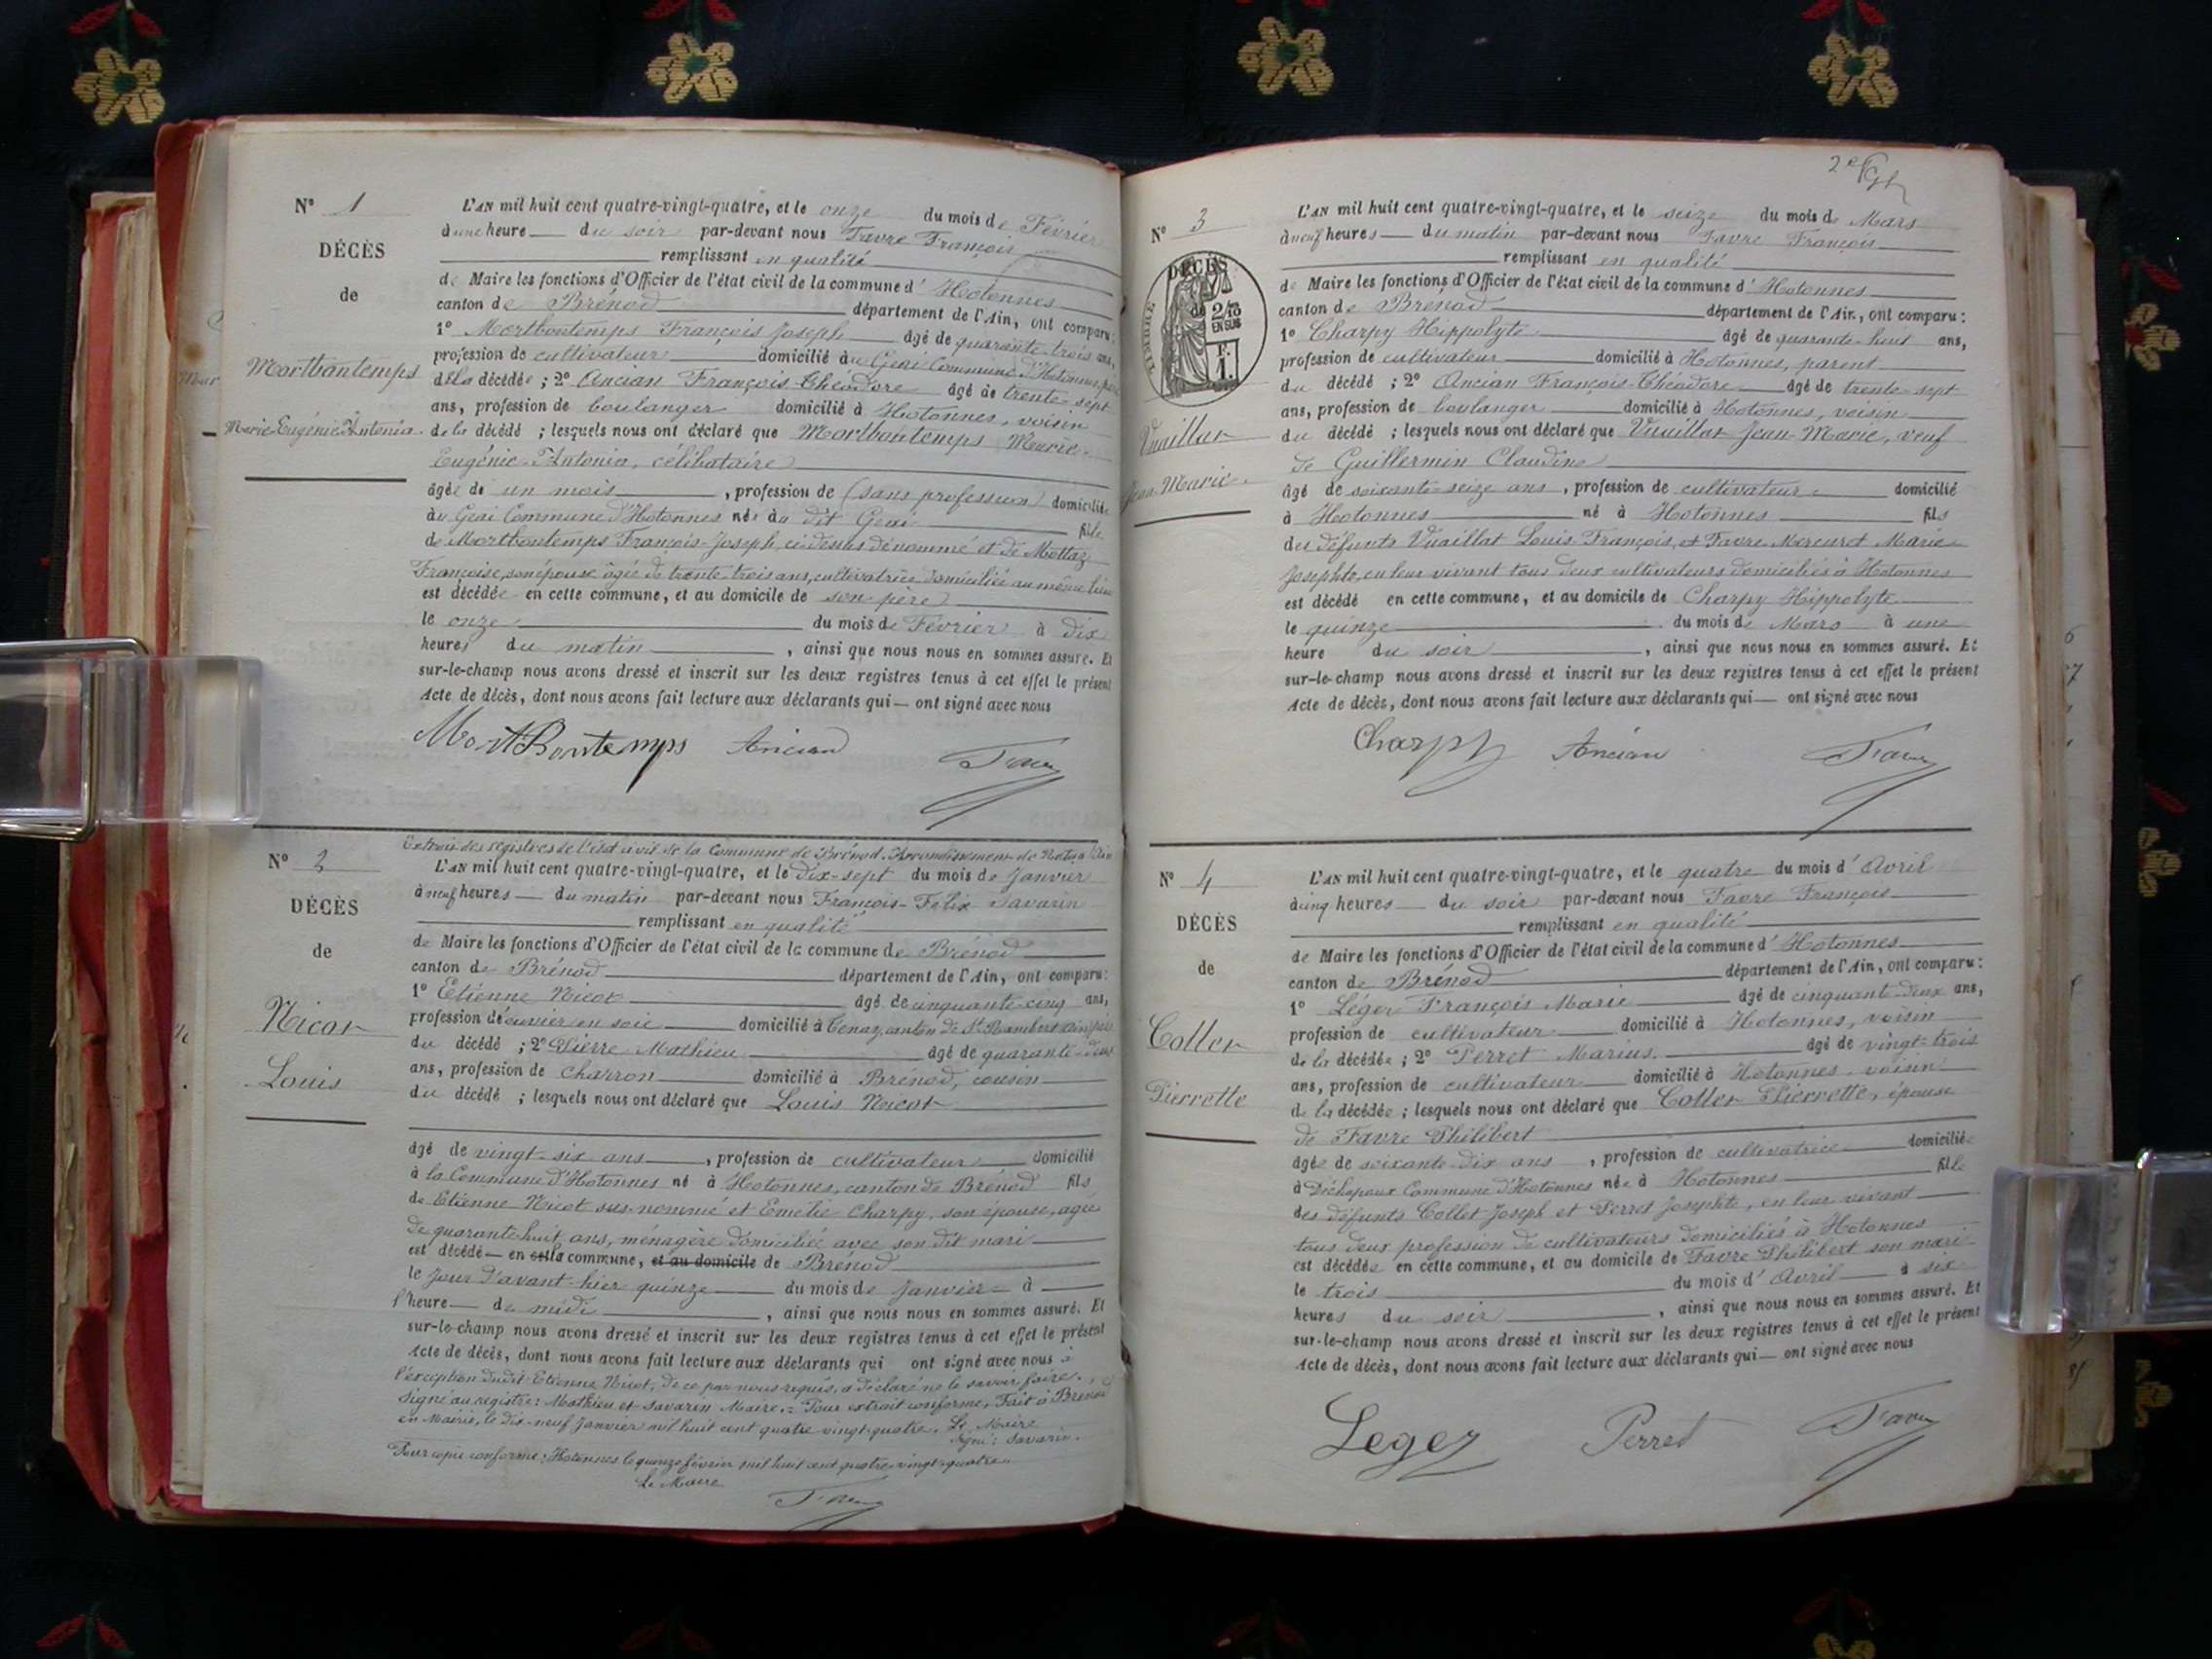 N° 1
DÉCÈS
de
Mortbontemps
Marie-Eugénie-Antonia.
L'AN mil huit cent quatre-vingt-quatre, et le onze du mois de Février
à une heure du soir par-devant nous Favre François
remplissant en qualité
de Maire les fonctions d'Officier de l'état civil de la commune d'Hotonnes
canton de Brénod département de l'Ain, ont comparu:
1° Mortbontemps François Joseph âgé de quarante-trois ans,
profession de cultivateur domicilié au Geai Commune d'Hotonnes, père
de la décédée ; 2° Ancian François-Théodore âgé de trente-sept
ans, profession de boulanger domicilié à Hotonnes, voisin
de la décédé ; lesquels nous ont déclaré que Mortbontemps Marie-
Eugénie-Antonia, célibataire
âgée de un mois, profession de (sans profession) domiciliée
au Geai Commune d'Hotonnes née au dit Geai fille
de Mortbontemps François-Joseph, ci-dessus dénommé et de Mottaz
Françoise, son épouse âgée de trente-trois ans, cultivatrice domiciliée au même lieu
est décédée en cette commune, et au domicile de son père
le onze du mois de Février à dix
heures du matin, ainsi que nous nous en sommes assuré. Et
sur-le-champ nous avons dressé et inscrit sur les deux registres tenus à cet effet le présent
Acte de décès, dont nous avons fait lecture aux déclarants qui — ont signé avec nous
MortBontemps Ancian Favre
N° 2
DÉCÈS
de
Nicot
Louis
Extrait des registres de l'état civil de la Commune de Brénod, Arrondissement de Nantua (Ain
L'AN mil huit cent quatre-vingt-quatre, et le dix-sept du mois de Janvier
à neuf heures du matin par-devant nous François-Félix Savarin
remplissant en qualité
de Maire les fonctions d'Officier de l'état civil de la commune de Brénod
canton de Brénod département de l'Ain, ont comparu:
1° Etienne Nicot âgé de cinquante-cinq ans,
profession d'ouvrier en soie domicilié à Tenay, canton de St Rambert (Ain) père
du décédé ; 2° Pierre Mathieu âgé de quarante-deux
ans, profession de charron domicilié à Brénod, cousin
du décédé ; lesquels nous ont déclaré que Louis Nicot
âgé de vingt-six ans, profession de cultivateur domicilié
à la Commune d'Hotonnes né à Hotonnes, canton de Brénod fils
de Etienne Nicot sus-nommé et Emélie Charpy, son épouse, agée
de quarante-huit ans, ménagère domiciliée avec son dit mari
est décédé — en cette commune, et au domicile de Brénod
le jour d'avant-hier quinze du mois de Janvier à
l'heure de midi, ainsi que nous nous en sommes assuré. Et
sur-le-champ nous avons dressé et inscrit sur les deux registres tenus à cet effet le présent
Acte de décès, dont nous avons fait lecture aux déclarants qui ont signé avec nous à
l'exception dudit Etienne Nicot, de ce par nous requis, a déclaré ne le savoir faire.
Signé au registre: Mathieu et Savarin Maire. = Pour extrait conforme, Fait à Brénod
en Mairie, le dix-neuf Janvier mil huit cent quatre vingt-quatre. Le Maire
Signé: Savarin.
Pour copie conforme: Hotonnes le quinze février mil huit cent quatre-vingt-quatre
Le Maire
Favre
N° 3
DÉCÈS
de
TIMBRE
2/10
EN SUS
F.
1.
Vuaillat
Jean-Marie.
L'AN mil huit cent quatre-vingt-quatre, et le seize du mois de Mars
à neuf heures du matin par-devant nous Favre François
remplissant en qualité
de Maire les fonctions d'Officier de l'état civil de la commune d'Hotonnes
canton de Brénod département de l'Ain, ont comparu:
1° Charpy Hippolyte âgé de quarante-huit ans,
profession de cultivateur domicilié à Hotonnes, parent
du décédé ; 2° Ancian François-Théodore âgé de trente-sept
ans, profession de boulanger domicilié à Hotonnes, voisin
du décédé ; lesquels nous ont déclaré que Vuaillat Jean-Marie, veuf
de Guillermin Claudine
âgé de soixante-seize ans, profession de cultivateur domicilié
à Hotonnes né à Hotonnes fils
des défunts Vuaillat Louis François, et Favre Mercuret Marie
Josephte, en leur vivant tous deux cultivateurs domiciliés à Hotonnes
est décédé en cette commune, et au domicile de Charpy Hippolyte
le quinze du mois de Mars à une
heure du soir, ainsi que nous nous en sommes assuré. Et
sur-le-champ nous avons dressé et inscrit sur les deux registres tenus à cet effet le présent
Acte de décès, dont nous avons fait lecture aux déclarants qui — ont signé avec nous
Charpy Ancian Favre
N° 4
DÉCÈS
de
Collet
Pierrette
L'AN mil huit cent quatre-vingt-quatre, et le quatre du mois d'Avril
à cinq heures du soir par-devant nous Favre François
remplissant en qualité
de Maire les fonctions d'Officier de l'état civil de la commune d'Hotonnes
canton de Brénod département de l'Ain, ont comparu:
1° Léger François Marie âgé de cinquante-deux ans,
profession de cultivateur domicilié à Hotonnes, voisin
de la décédée ; 2° Perret Marius âgé de vingt-trois
ans, profession de cultivateur domicilié à Hotonnes, voisin
de la décédée ; lesquels nous ont déclaré que Collet Pierrette, épouse
de Favre Philibert
âgée de soixante-dix ans, profession de cultivatrice domiciliée
à Commune d'Hotonnes née à Hotonnes fille
des défunts Collet Joseph et Perret Josephte, en leur vivant
tous deux profession de cultivateurs domiciliés à Hotonnes
est décédée en cette commune, et au domicile de Favre Philibert son mari
le trois du mois d'Avril à six
heures du soir, ainsi que nous nous en sommes assuré. Et
sur-le-champ nous avons dressé et inscrit sur les deux registres tenus à cet effet le présent
Acte de décès, dont nous avons fait lecture aux déclarants qui — ont signé avec nous
Leger Perret Favre